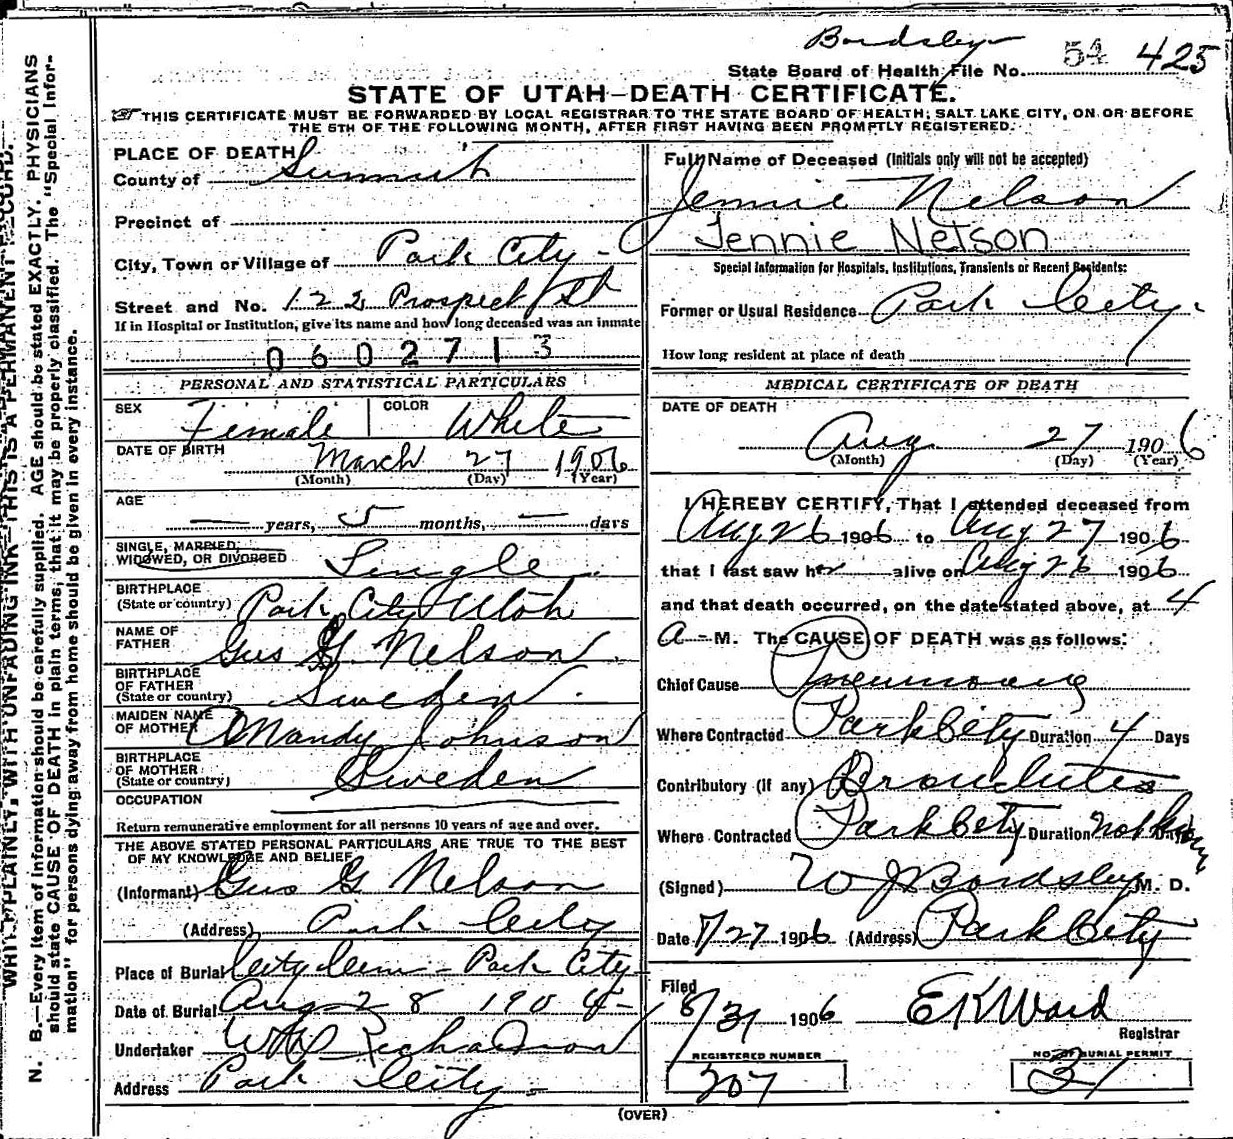 Bardsley 54 425
State Board of Health File No.
STATE OF UTAH—DEATH CERTIFICATE.
THIS CERTIFICATE MUST BE FORWARDED BY LOCAL REGISTRAR TO THE STATE BOARD OF HEALTH; SALT LAKE CITY, ON OR BEFORE
THE 5TH OF THE FOLLOWING MONTH, AFTER FIRST HAVING BEEN PROMPTLY REGISTERED.
PLACE OF DEATH
County of Summit
Precinct of
City, Town or Village of Park City
Street and No. 122 Prospect St
If in Hospital or Institution, give its name and how long deceased was an inmate
0602713
PERSONAL AND STATISTICAL PARTICULARS
SEX Female COLOR White
DATE OF BIRTH March 27 1906
(Month) (Day) (Year)
AGE
— years, 5 months, — days
SINGLE, MARRIED,
WIDOWED, OR DIVORCED Single
BIRTHPLACE
(State or country) Park City Utah
NAME OF
FATHER Gus G. Nelson
BIRTHPLACE
OF FATHER
(State or country) Sweden.
MAIDEN NAME
OF MOTHER Amandy Johnson
BIRTHPLACE
OF MOTHER
(State or country) Sweden
OCCUPATION
Return remunerative employment for all persons 10 years of age and over.
THE ABOVE STATED PERSONAL PARTICULARS ARE TRUE TO THE BEST
OF MY KNOWLEDGE AND BELIEF
(Informant) Gus G Nelson
(Address) Park City
Place of Burial City Cem - Park City
Date of Burial Aug 28 190
Undertaker Richardson
Address Park City -
Full Name of Deceased (Initials only will not be accepted)
Jennie Nelson
Jennie Nelson
Special Information for Hospitals, Institutions, Transients or Recent Residents:
Former or Usual Residence Park City.
How long resident at place of death
MEDICAL CERTIFICATE OF DEATH
DATE OF DEATH
Aug 27 1906
(Month) (Day) (Year)
I HEREBY CERTIFY, That I attended deceased from
Aug 26 1906 to Aug 27 1906
that I last saw her alive on Aug 26 1906
and that death occurred, on the date stated above, at 4
a - M. The CAUSE OF DEATH was as follows:
Chief Cause Pneumonia
Where Contracted Park City Duration 4 Days
Contributory (if any) Bronchitis
Where Contracted Park City Duration not known
(Signed) W J Bardsley M. D.
Date 8/27 1906 (Address) Park City
Filed
8/31 1906 E K Ward
Registrar
REGISTERED NUMBER
207
NO. OF BURIAL PERMIT
31
(OVER)
N. B.—Every item of information should be carefully supplied. AGE should be stated EXACTLY. PHYSICIANS
should state CAUSE OF DEATH in plain terms, that it may be properly classified. The "Special Infor-
mation" for persons dying away from home should be given in every instance.
WRITE PLAINLY, WITH UNFADING INK—THIS IS A PERMANENT RECORD.